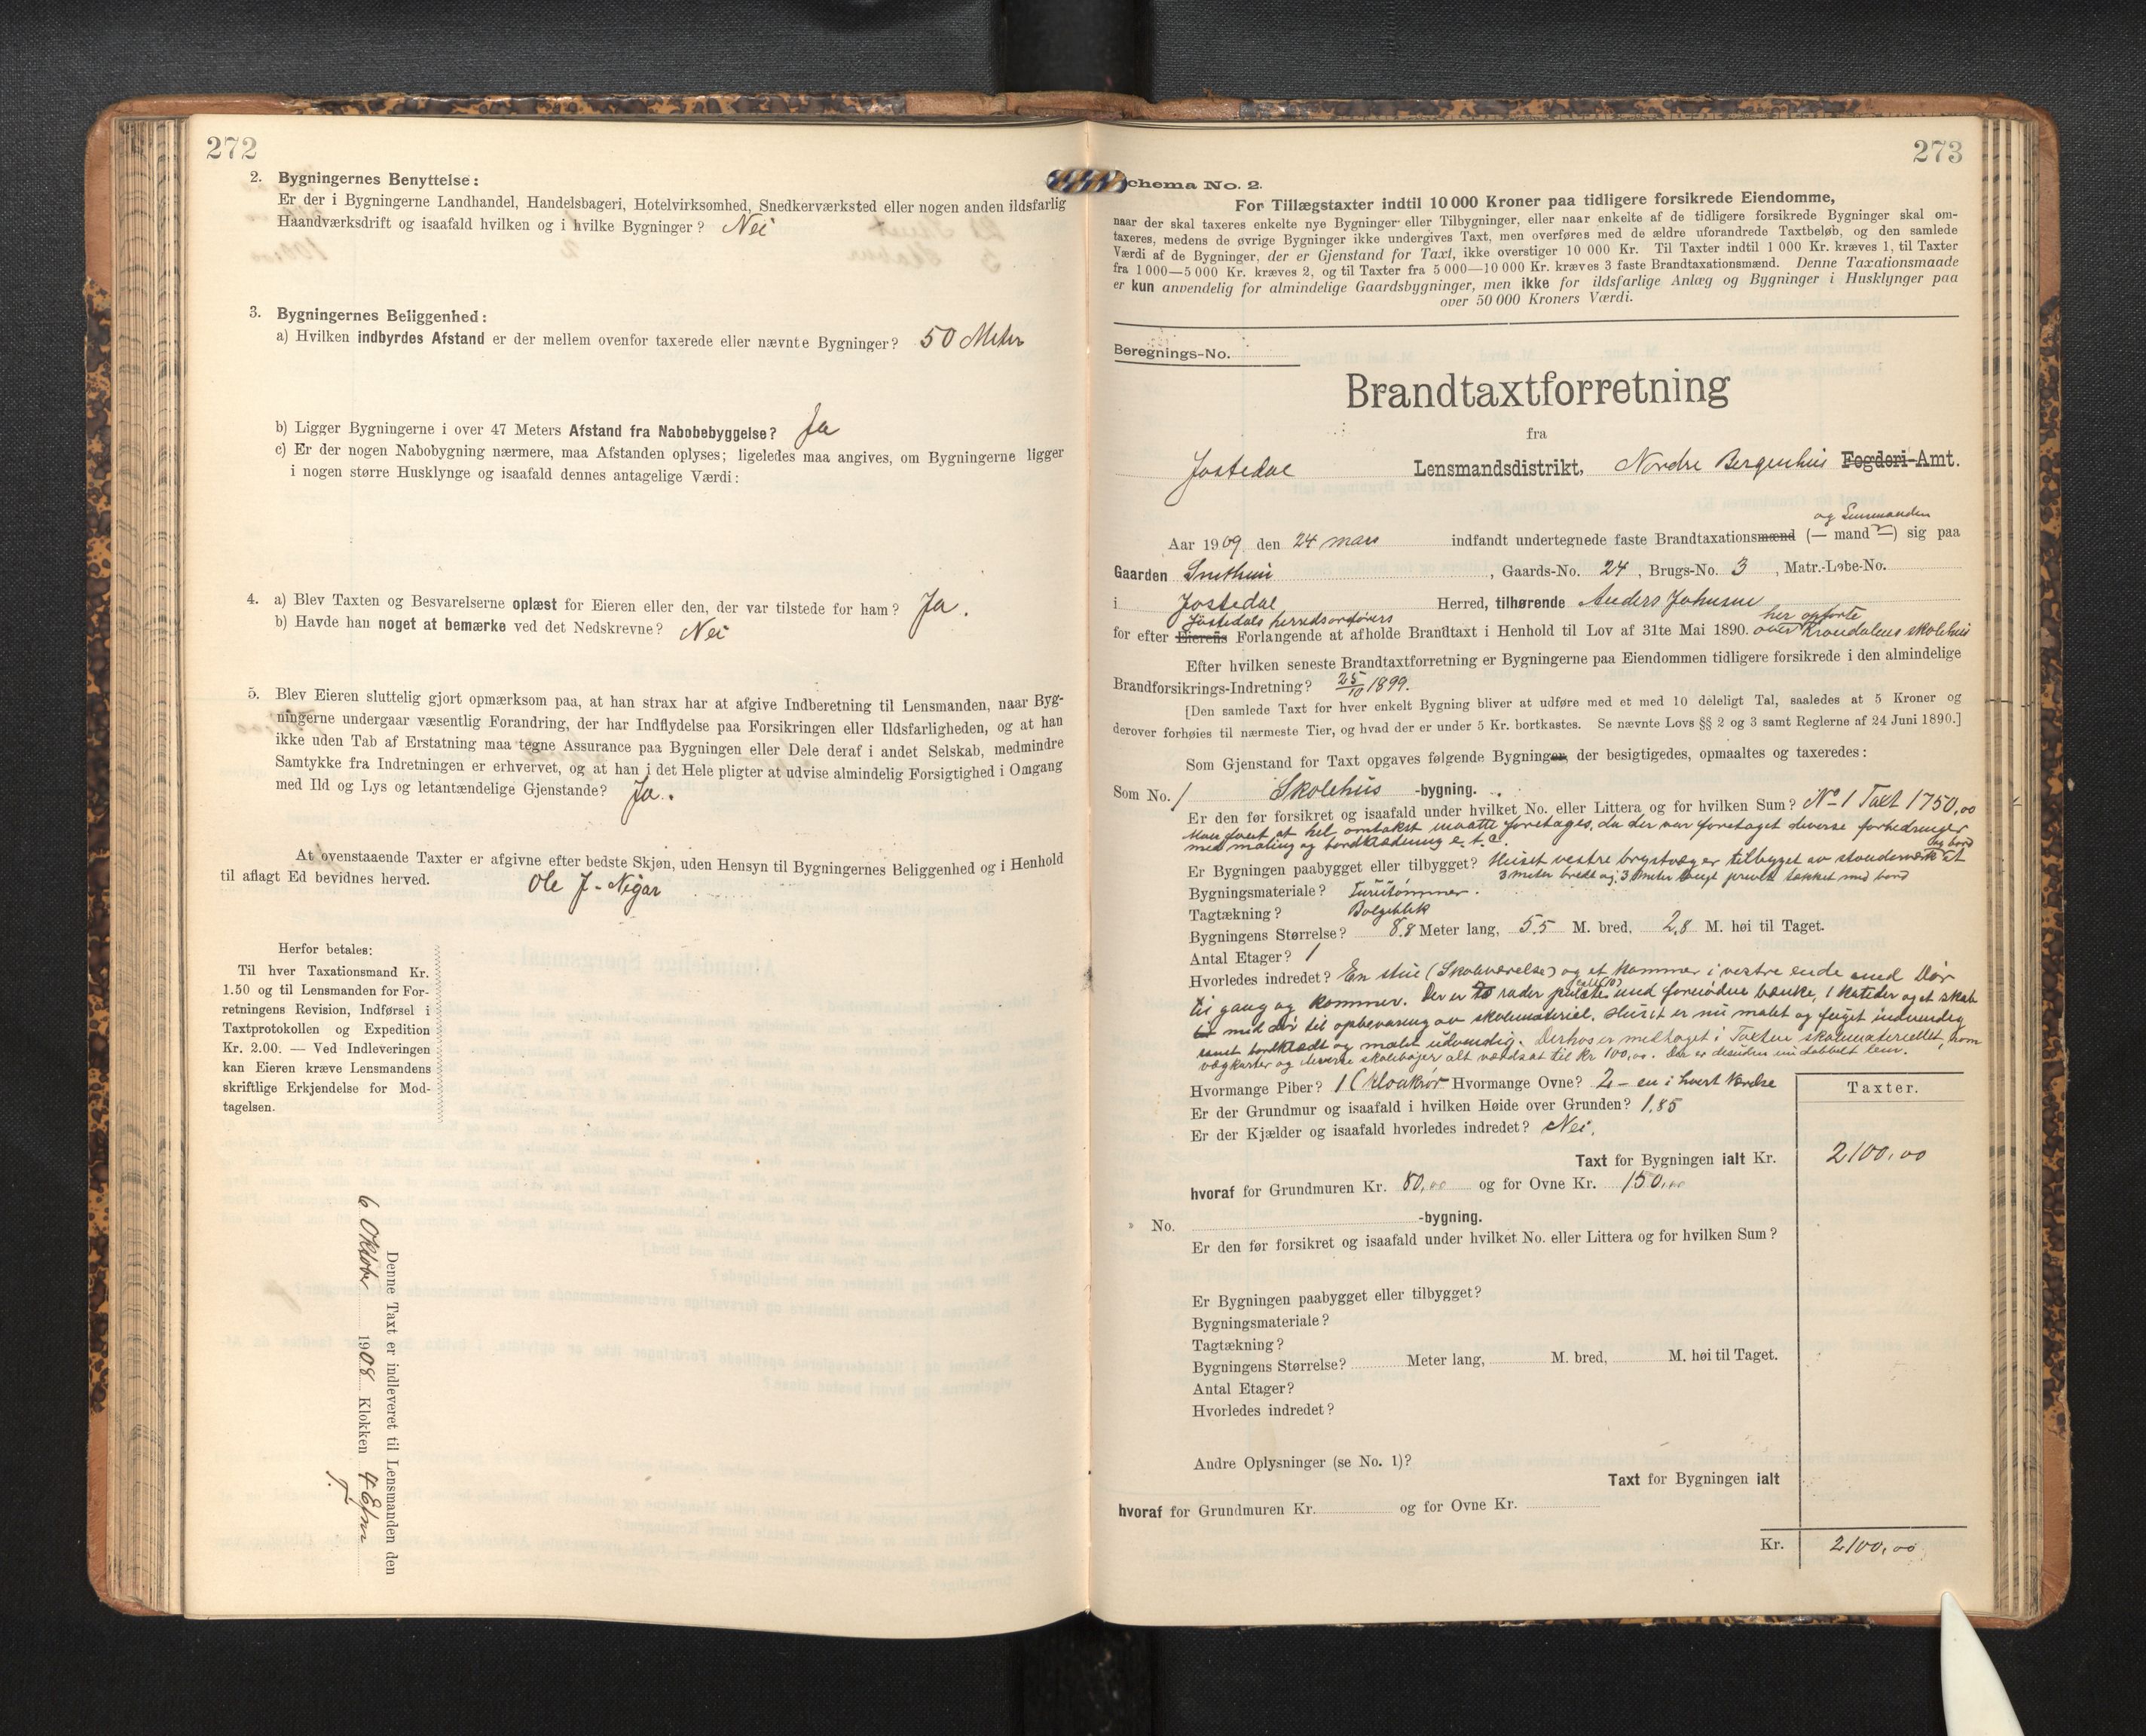 272
2. Bygningernes Benyttelse:
Er der i Bygningerne Landhandel, Handelsbageri, Hotelvirksomhed, Snedkerværksted eller nogen anden ildsfarlig
Haandværksdrift og isaafald hvilken og i hvilke Bygninger? Nei
3. Bygningernes Beliggenhed:
a) Hvilken indbyrdes Afstand er der mellem ovenfor taxerede eller nævnte Bygninger? 50 Meter
b) Ligger Bygningerne i over 47 Meters Afstand fra Nabobebyggelse? Ja
c) Er der nogen Nabobygning nærmere, maa Afstanden oplyses; ligeledes maa angives, om Bygningerne ligger
i nogen større Husklynge og isaafald dennes antagelige Værdi:
4. a) Blev Taxten og Besvarelserne oplæst for Eieren eller den, der var tilstede for ham? Ja.
b) Havde han noget at bemærke ved det Nedskrevne? Nei
5. Blev Eieren sluttelig gjort opmærksom paa, at han strax har at afgive Indberetning til Lensmanden, naar Byg-
ningerne undergaar væsentlig Forandring, der har Indflydelse paa Forsikringen eller Ildsfarligheden, og at han
ikke uden Tab af Erstatning maa tegne Assurance paa Bygningen eller Dele deraf i andet Selskab, medmindre
Samtykke fra Indretningen er erhvervet, og at han i det Hele pligter at udvise almindelig Forsigtighed i Omgang
med Ild og Lys og letantændelige Gjenstande? Ja.
At ovenstaaende Taxter er afgivne efter bedste Skjøn, uden Hensyn til Bygningernes Beliggenhed og i Henhold
til aflagt Ed bevidnes herved. Ole J. Nigar
Herfor betales:
Til hver Taxationsmand Kr.
1.50 og til Lensmanden for For-
retningens Revision, Indførsel i
Taxtprotokollen og Expedition
Kr. 2.00. — Ved Indleveringen
kan Eieren kræve Lensmandens
skriftlige Erkjendelse for Mod-
tagelsen.
Denne Taxt er indleveret til Lensmanden den
6 Oktobr 1908 Klokken 4 Efm
273
chema No. 2.
For Tillægstaxter indtil 10 000 Kroner paa tidligere forsikrede Eiendomme,
naar der skal taxeres enkelte nye Bygninger eller Tilbygninger, eller naar enkelte af de tidligere forsikrede Bygninger skal om-
taxeres, medens de øvrige Bygninger ikke undergives Taxt, men overføres med de ældre uforandrede Taxtbeløb, og den samlede
Værdi af de Bygninger, der er Gjenstand for Taxt, ikke overstiger 10 000 Kr. Til Taxter indtil 1 000 Kr. kræves 1, til Taxter
fra 1 000—5 000 Kr. kræves 2, og til Taxter fra 5 000—10 000 Kr. kræves 3 faste Brandtaxationsmænd. Denne Taxationsmaade
er kun anvendelig for almindelige Gaardsbygninger, men ikke for ildsfarlige Anlæg og Bygninger i Husklynger paa
over 50 000 Kroners Værdi.
Beregnings-No.
Brandtaxtforretning
fra
Jostedal Lensmandsdistrikt, Nordre Bergenhus Fogderi-Amt.
og Lensmanden
Aar 1909 den 24 mars indfandt undertegnede faste Brandtaxationsmænd (— mand —) sig paa
Gaarden Snethun, Gaards-No. 24, Brugs-No. 3, Matr.-Løbe-No.
i Jostedal Herred, tilhørende Anders Johnsen
Jostedals herredsordførers her opførte
for efter Eierens Forlangende at afholde Brandtaxt i Henhold til Lov af 31te Mai 1890. over Krondalens skolehus
Efter hvilken seneste Brandtaxtforretning er Bygningerne paa Eiendommen tidligere forsikrede i den almindelige
Brandforsikrings-Indretning? 25/10 1899.
[Den samlede Taxt for hver enkelt Bygning bliver at udføre med et med 10 deleligt Tal, saaledes at 5 Kroner og
derover forhøies til nærmeste Tier, og hvad der er under 5 Kr. bortkastes. Se nævnte Lovs §§ 2 og 3 samt Reglerne af 24 Juni 1890.]
Som Gjenstand for Taxt opgaves følgende Bygninger, der besigtigedes, opmaaltes og taxeredes:
Som No. 1 Skolehus -bygning.
Er den før forsikret og isaafald under hvilket No. eller Littera og for hvilken Sum? No 1 Taxt 1750,00
Man fandt at hel omtakst maatte foretages, da der var foretaget diverse forbedringer
med maling og bordklædning e. t. c.
Er Bygningen paabygget eller tilbygget? Huset vestre brystvæg er tilbygget av stenderværk
3 meter bredt og 3 meter langt tækket med bord
Bygningsmateriale? Furutømmer.
Tagtækning? Bølgeblik
Bygningens Størrelse? 8.8 Meter lang, 5.5 M. bred, 2,8 M. høi til Taget.
Antal Etager? 1
Hvorledes indredet? En stue (Skoleværelse) og et kammer i vestre ende med Dør
til gang og kammer. Der er to rader pulte med fornødne bænke, 1 kateder og et skab
med dør til opbevaring av skolemateriel. Huset er nu malet og fuget indvendig
samt bordklædt og malet udvendig. Derhos er medtaget i Taxten skolematериellet, som
vægkarter og diverse skolebøger alt værdsat til kr 100,00.
Hvormange Piber? 1 (Kloakrør Hvormange Ovne? 2 - en i hvert Værelse
Er der Grundmur og isaafald i hvilken Høide over Grunden? 1,85
Er der Kjælder og isaafald hvorledes indredet? Nei.
Taxter.
Taxt for Bygningen ialt Kr. 2100,00
hvoraf for Grundmuren Kr. 80,00 og for Ovne Kr. 150,00
No. -bygning.
Er den før forsikret og isaafald under hvilket No. eller Littera og for hvilken Sum?
Er Bygningen paabygget eller tilbygget?
Bygningsmateriale?
Tagtækning?
Bygningens Størrelse? Meter lang, M. bred, M. høi til Taget.
Antal Etager?
Hvorledes indredet?
Andre Oplysninger (se No. 1)?
Taxt for Bygningen ialt
hvoraf for Grundmuren Kr. og for Ovne Kr.
Kr. 2100,00